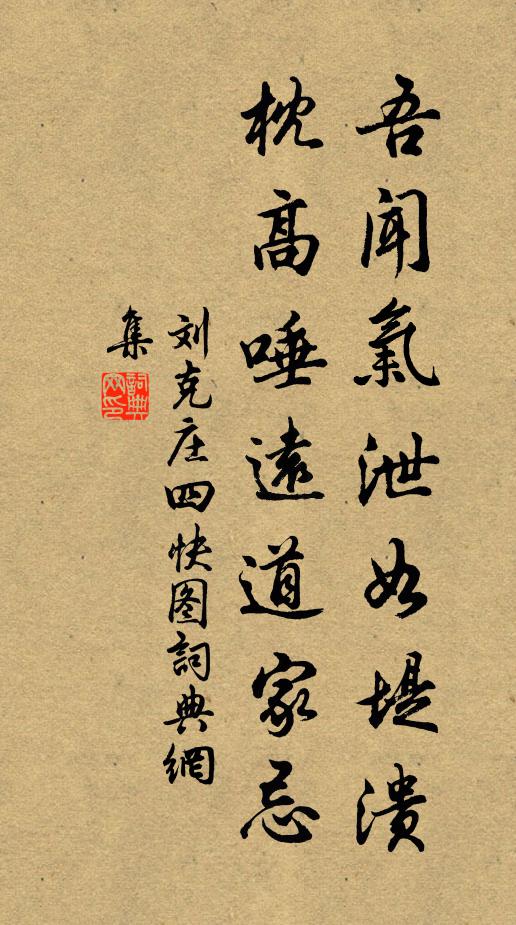 吾聞氣泄如堤潰
枕高唾遠道家忌
刘克庄四快图詞典網
集
詞典網印